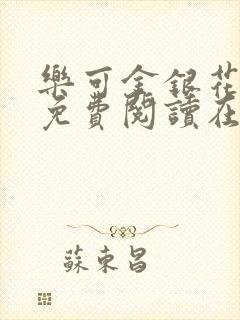 樂可金銀花
免費閱讀在
蘇東昌